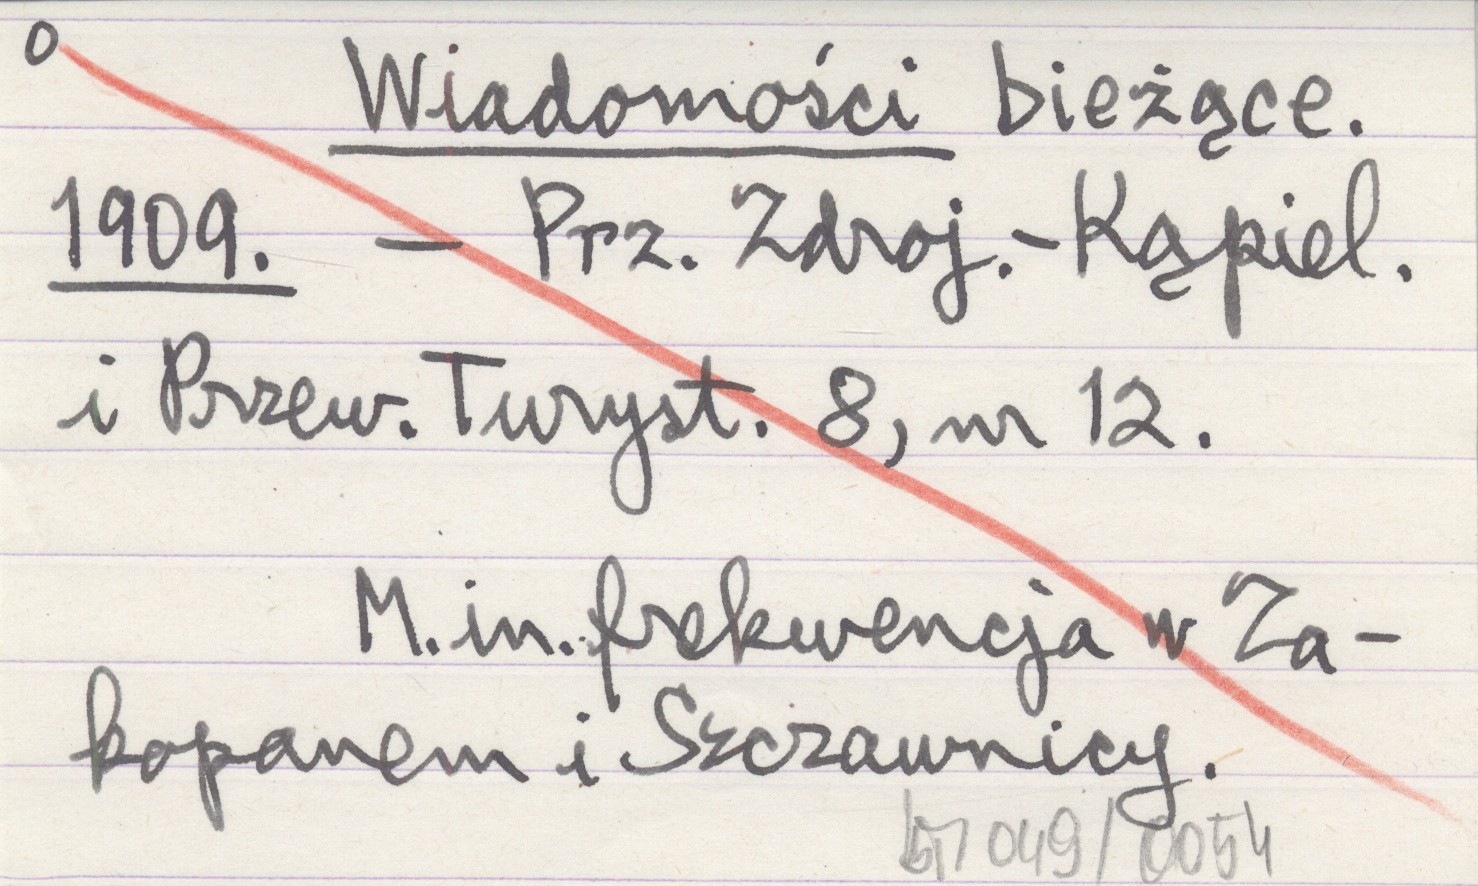 o
Wiadomości bieżące.
1909. – Prz. Zdroj.-Kąpiel.
i Przew. Turyst. 8, nr 12.
M. in. frekwencja w Za-
kopanem i Szczawnicy.
049/0054